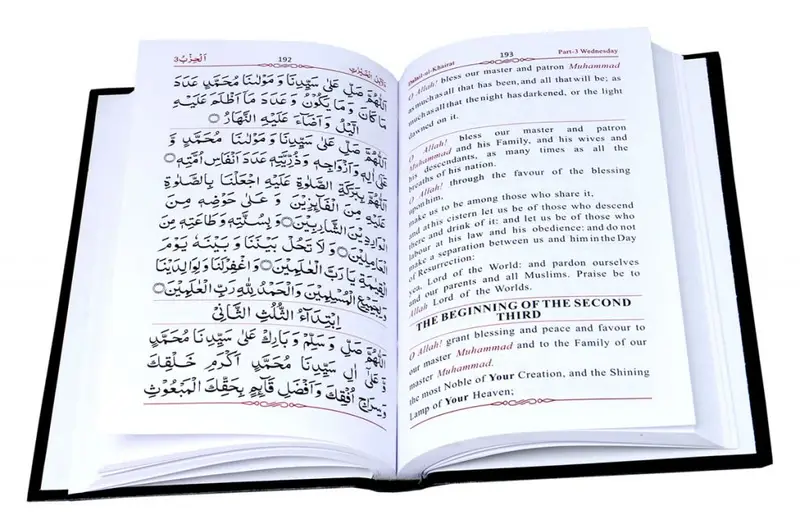 اَلْحِزْبُ3
192
دَلَآئِلُ الْخَيْرَاتِ
اَللّٰهُمَّ صَلِّ عَلٰى سَيِّدِنَا وَمَوْلٰىنَا مُحَمَّدٍ عَدَدَ
مَا كَانَ وَمَا يَكُوْنُ وَعَدَدَ مَآ اَظْلَمَ عَلَيْهِ
الَّيْلُ وَاَضَآءَ عَلَيْهِ النَّهَارُ
اَللّٰهُمَّ صَلِّ عَلٰى سَيِّدِنَا وَمَوْلٰىنَا مُحَمَّدٍ وَّ
عَلٰى اٰلِهٖ وَاَزْوَاجِهٖ وَذُرِّيَّتِهٖ عَدَدَ اَنْفَاسِ اُمَّتِهٖ
اَللّٰهُمَّ بِبَرَكَةِ الصَّلٰوةِ عَلَيْهِ اجْعَلْنَا بِالصَّلٰوةِ
عَلَيْهِ مِنَ الْفَآئِزِيْنَ وَعَلٰى حَوْضِهٖ مِنَ
الْوَارِدِيْنَ الشَّارِبِيْنَ وَبِسُنَّتِهٖ وَطَاعَتِهٖ مِنَ
الْعَامِلِيْنَ وَلَا تَحُلْ بَيْنَنَا وَبَيْنَهٗ يَوْمَ
الْقِيٰمَةِ يَا رَبَّ الْعٰلَمِيْنَ وَاغْفِرْلَنَا وَلِوَالِدَيْنَا
وَلِجَمِيْعِ الْمُسْلِمِيْنَ وَالْحَمْدُ لِلّٰهِ رَبِّ الْعٰلَمِيْنَ
اِبْتِدَآءُ الثُّلُثِ الثَّانِيْ
اَللّٰهُمَّ صَلِّ وَسَلِّمْ وَبَارِكْ عَلٰى سَيِّدِنَا مُحَمَّدٍ
وَّ عَلٰٓى اٰلِ سَيِّدِنَا مُحَمَّدٍ اَكْرَمِ خَلْقِكَ
وَسِرَاجِ اُفُقِكَ وَاَفْضَلِ قَآئِمٍ بِحَقِّكَ الْمَبْعُوْثِ
Dalail-ul-Khairat
193
Part-3 Wednesday
O Allah! bless our master and patron Muhammad
as much as all that has been, and all that will be; as
much as all that the night has darkened, or the light
dawned on it.
O Allah! bless our master and patron
Muhammad and his Family, and his wives and
his descendants, as many times as all the
breaths of his nation.
O Allah! through the favour of the blessing
upon him,
make us to be among those who share it,
and at his cistern let us be of those who descend
there and drink of it: and let us be of those who
labour at his law and his obedience: and do not
make a separation between us and him in the Day
of Resurrection:
yea, Lord of the World: and pardon ourselves
and our parents and all Muslims. Praise be to
Allah Lord of the Worlds.
THE BEGINNING OF THE SECOND
THIRD
O Allah! grant blessing and peace and favour to
our master Muhammad and to the Family of our
master Muhammad.
the most Noble of Your Creation, and the Shining
Lamp of Your Heaven;